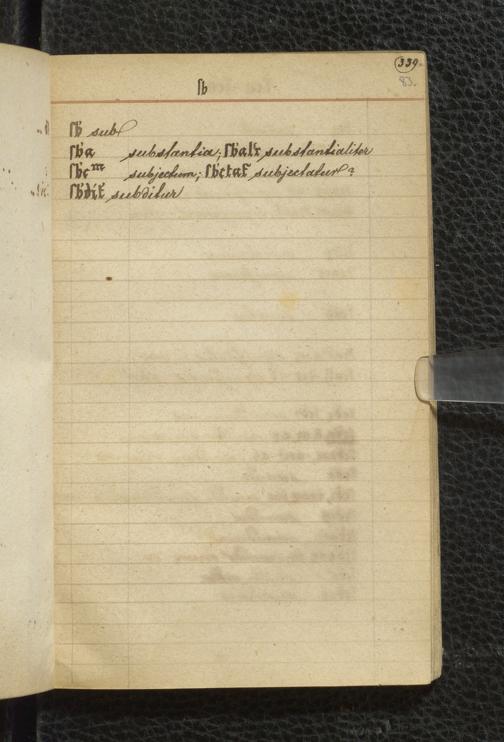 339.
83.
sb
sb sub
sba substantia; sbalr substantialiter
sbcm subjectum; sbctat subjectatur?
sbdit subditur